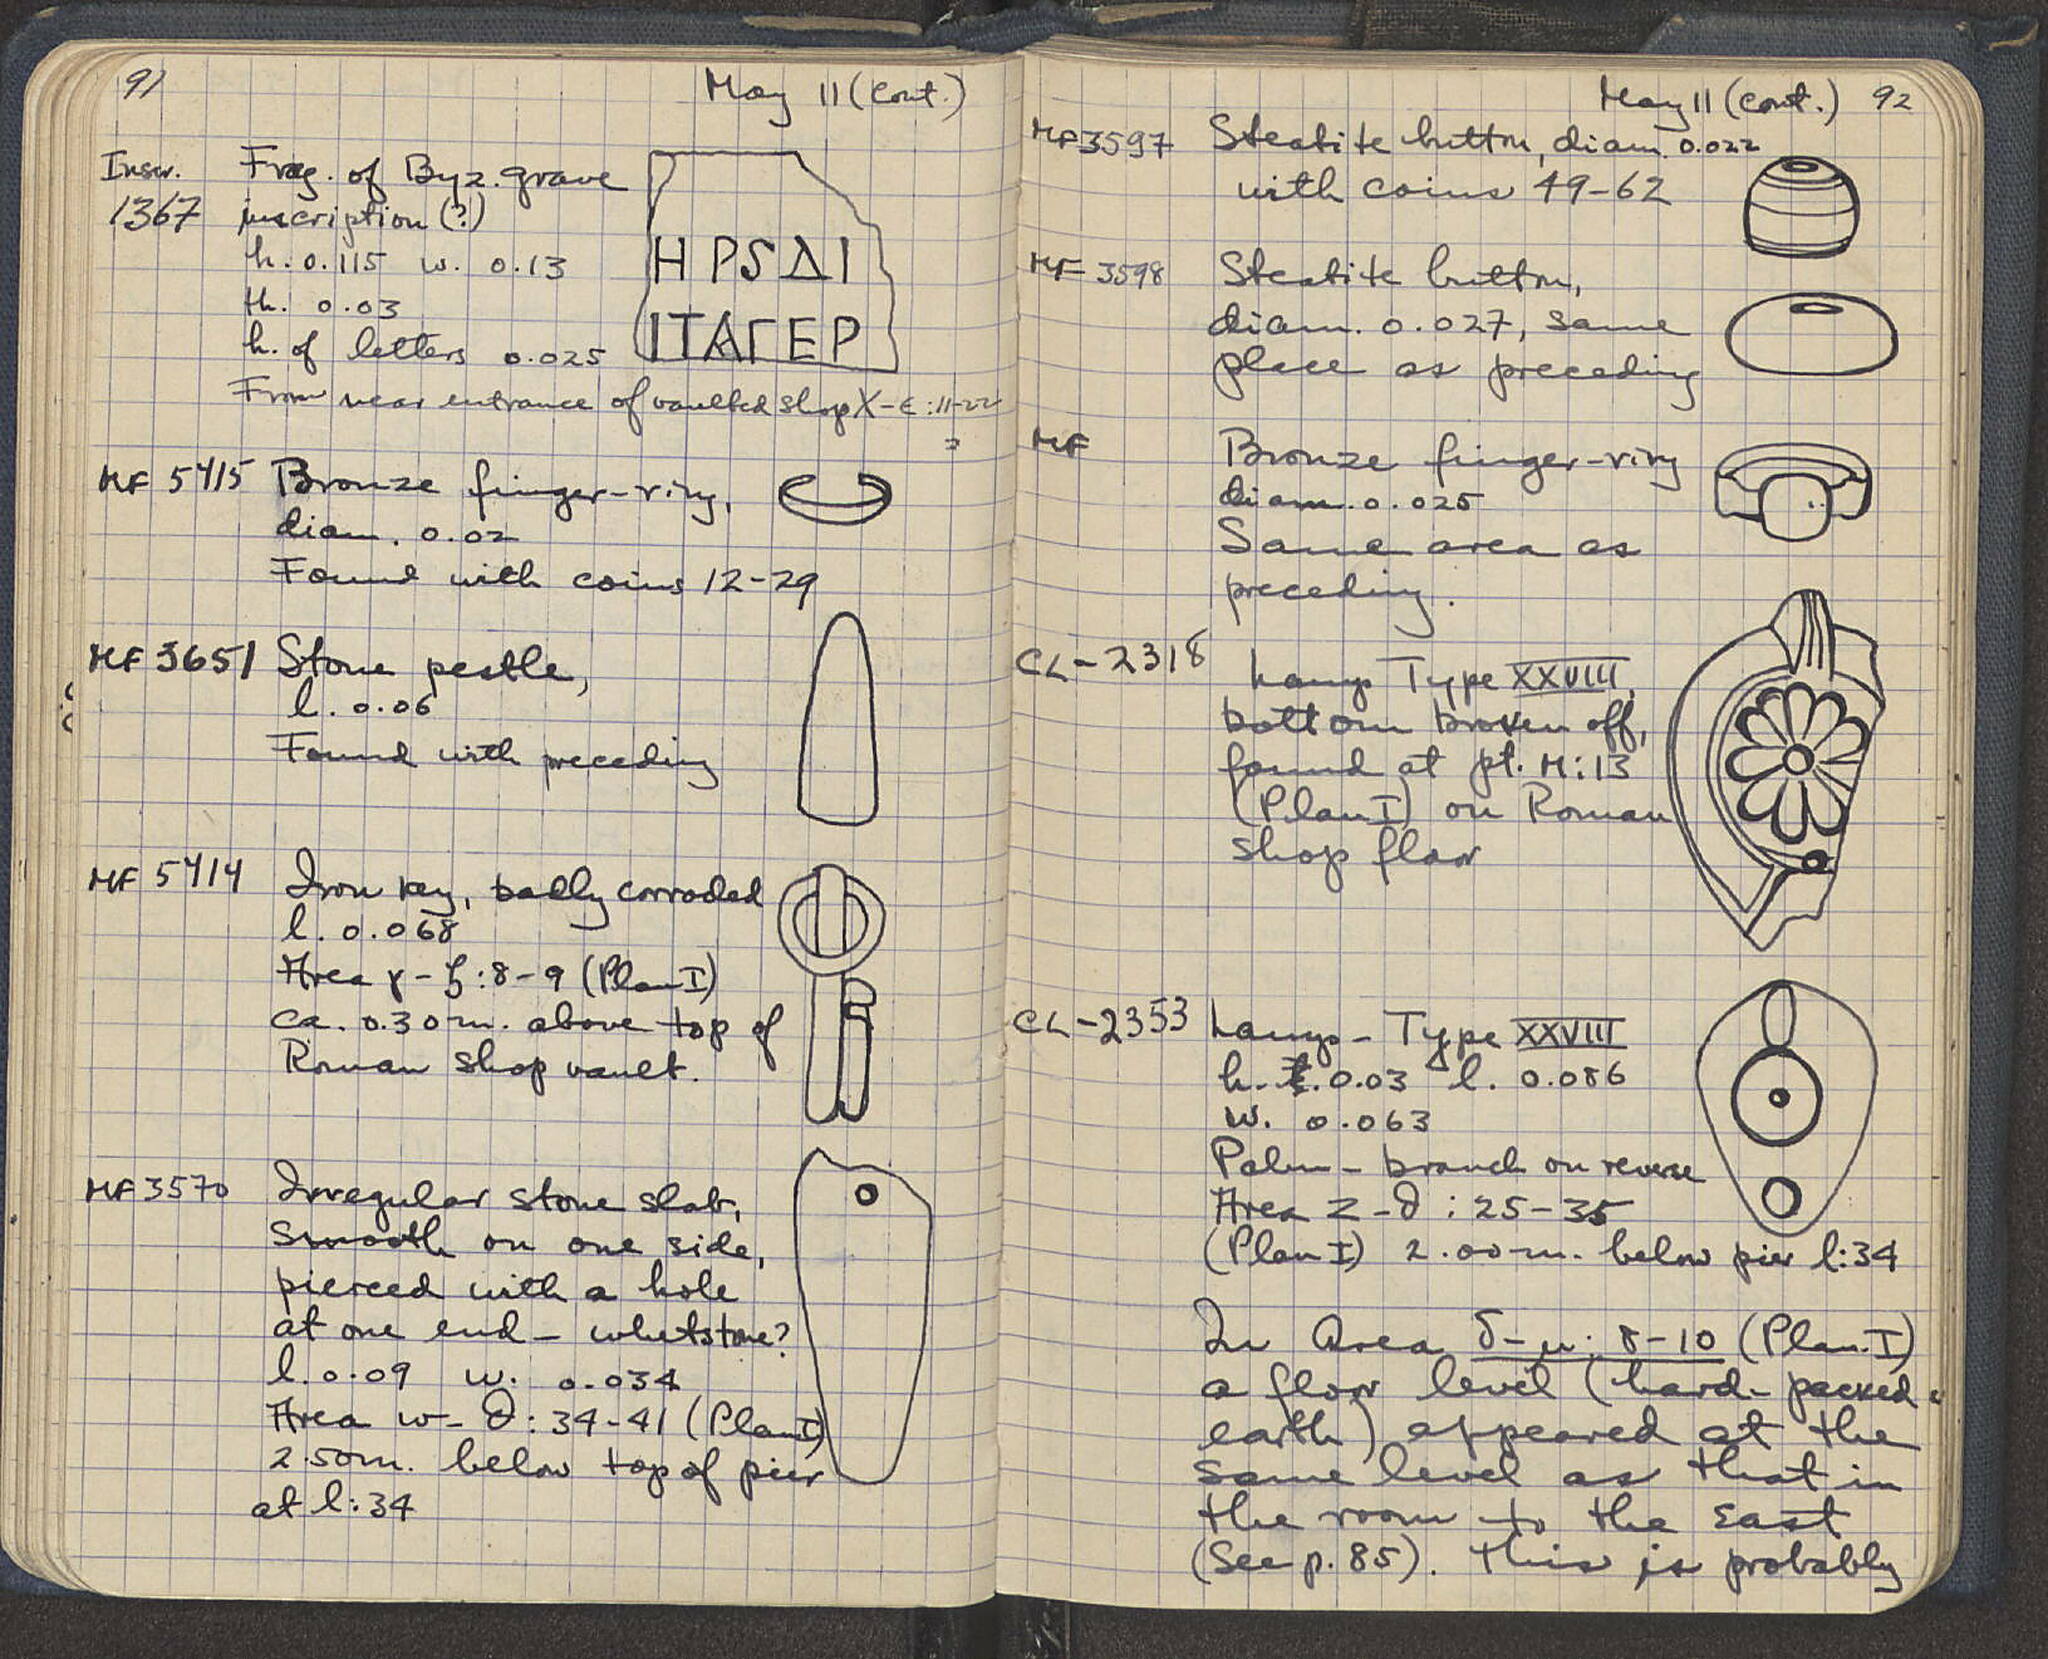 91
May 11 (cont.)
Inscr. 1367
Frag. of Byz. grave
inscription (?)
h. 0.115 w. 0.13
th. 0.03
h. of letters 0.025
From near entrance of vaulted shop X-E:11-22
ΗΡSΔΙ
ΙΤΑΓΕΡ
MF 5415
Bronze finger-ring,
diam. 0.02
Found with coins 12-29
MF 3651
Stone pestle,
l. 0.06
Found with preceding
MF 5414
Iron key, badly corroded
l. 0.068
Area γ-ζ:8-9 (Plan I)
ca. 0.30 m. above top of
Roman shop vault.
MF 3570
Irregular stone slab,
smooth on one side,
pierced with a hole
at one end - whetstone?
l. 0.09 w. 0.034
Area w-∂:34-41 (Plan I)
2.50 m. below top of pier
at l:34
May 11 (cont.) 92
MF 3597
Steatite button, diam. 0.022
with coins 49-62
MF 3598
Steatite button,
diam. 0.027, same
place as preceding
MF
Bronze finger-ring
diam. 0.025
Same area as
preceding.
CL-2318
Lamp Type XXVIII,
bottom broken off,
found at pt. M:13
(Plan I) on Roman
shop floor
CL-2353
Lamp - Type XXVIII
h. 0.03 l. 0.086
w. 0.063
Palm-branch on reverse
Area Z-∂:25-35
(Plan I) 2.00 m. below pier l:34
In Area δ-μ:8-10 (Plan I)
a floor level (hard-packed
earth) appeared at the
same level as that in
the room to the East
(See p. 85). This is probably